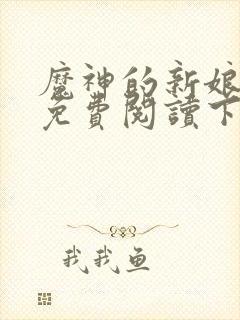 魔神的新娘
免費閱讀下
我我魚